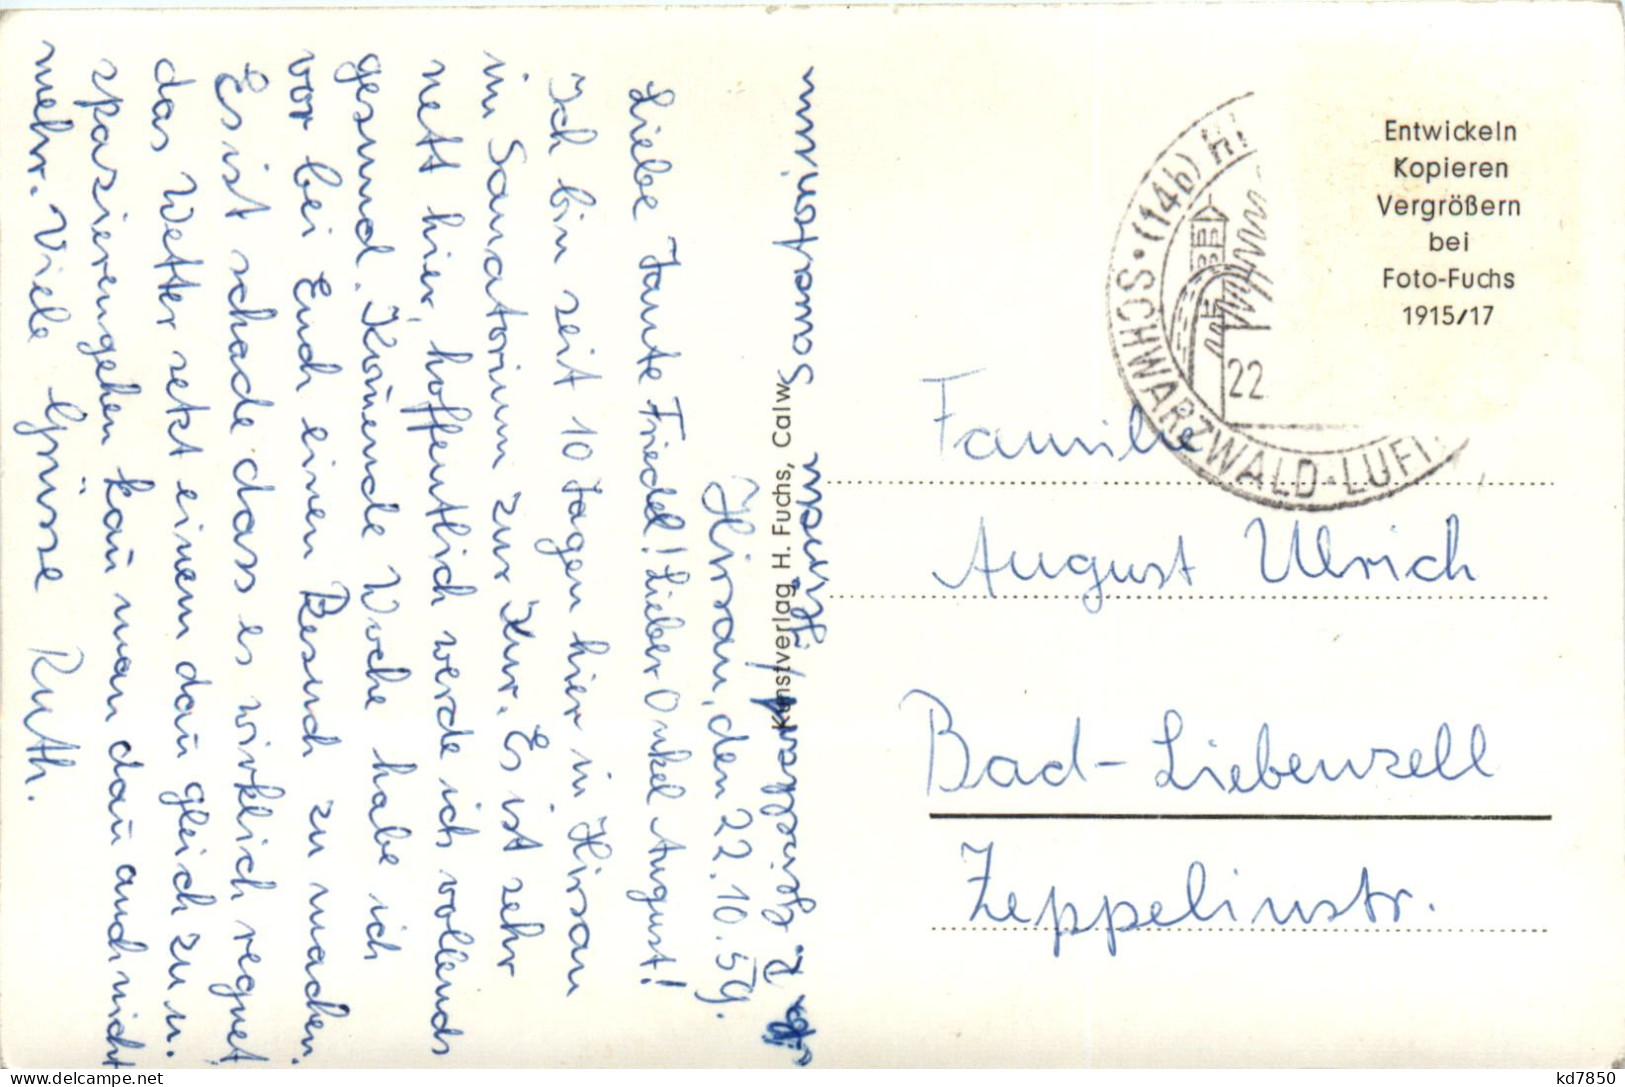 R. Geisddarp, Hirsau Sanatorium
Hirsau, den 22.10.59.
Liebe Tante Friedel! Lieber Onkel August!
Ich bin seit 10 Tagen hier in Hirsau
im Sanatorium zur Kur. Es ist sehr
nett hier, hoffentlich werde ich vollends
gesund. Kom̄ende Woche habe ich
vor bei Euch einen Besuch zu machen.
Es ist schade dass es wirklich regnet
das Wetter setzt einem dan̄ gleich zu u.
spazierengehen kan̄ man dan̄ auch nicht
mehr. Viele Grüsse Ruth.
Kunstverlag H. Fuchs, Calw
(14b) HI
SCHWARZWALD-LUFT
22
Entwickeln
Kopieren
Vergrößern
bei
Foto-Fuchs
1915/17
Familie
August Ulrich
Bad-Liebenzell
Zeppelinstr.
kd7850